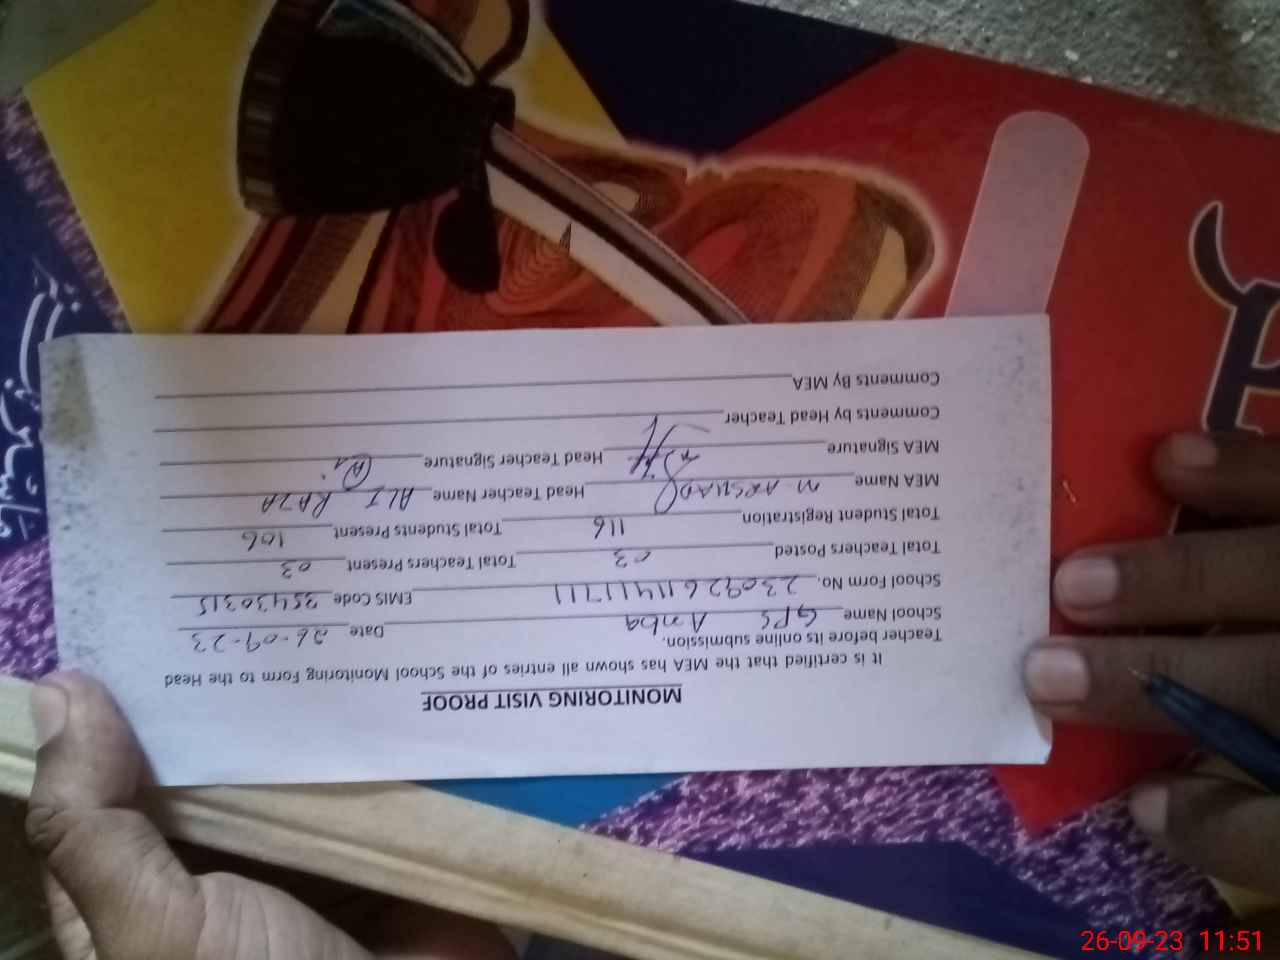 MONITORING VISIT PROOF
It is certified that the MEA has shown all entries of the School Monitoring Form to the Head
Teacher before its online submission.
School Name GPS Anba Date 26-09-23
School Form No. 230926114111711 EMIS Code 35430315
Total Teachers Posted 03 Total Teachers Present 03
Total Student Registration 116 Total Students Present 106
MEA Name M-ARSHAD Head Teacher Name ALI RAZA
MEA Signature Head Teacher Signature
Comments by Head Teacher
Comments By MEA
26-09-23 11:51